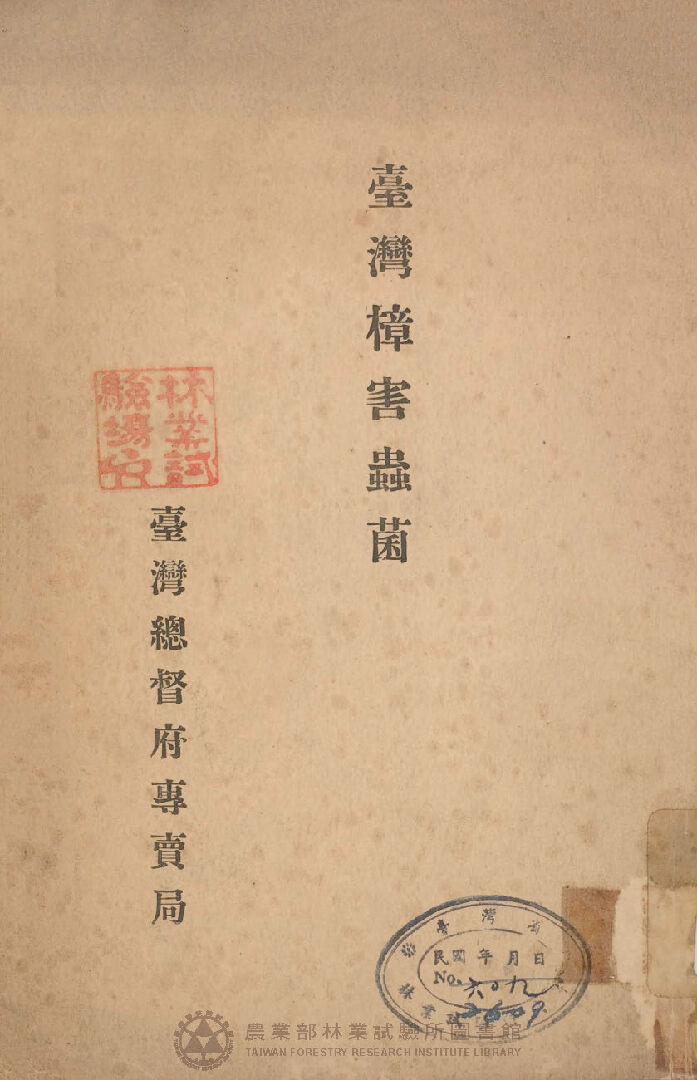 臺灣樟害蟲菌
臺灣總督府專賣局
林業試
驗場
臺灣省
林業
民國 年 月 日
No. 六〇九
2609
農業部林業試驗所圖書館
TAIWAN FORESTRY RESEARCH INSTITUTE LIBRARY